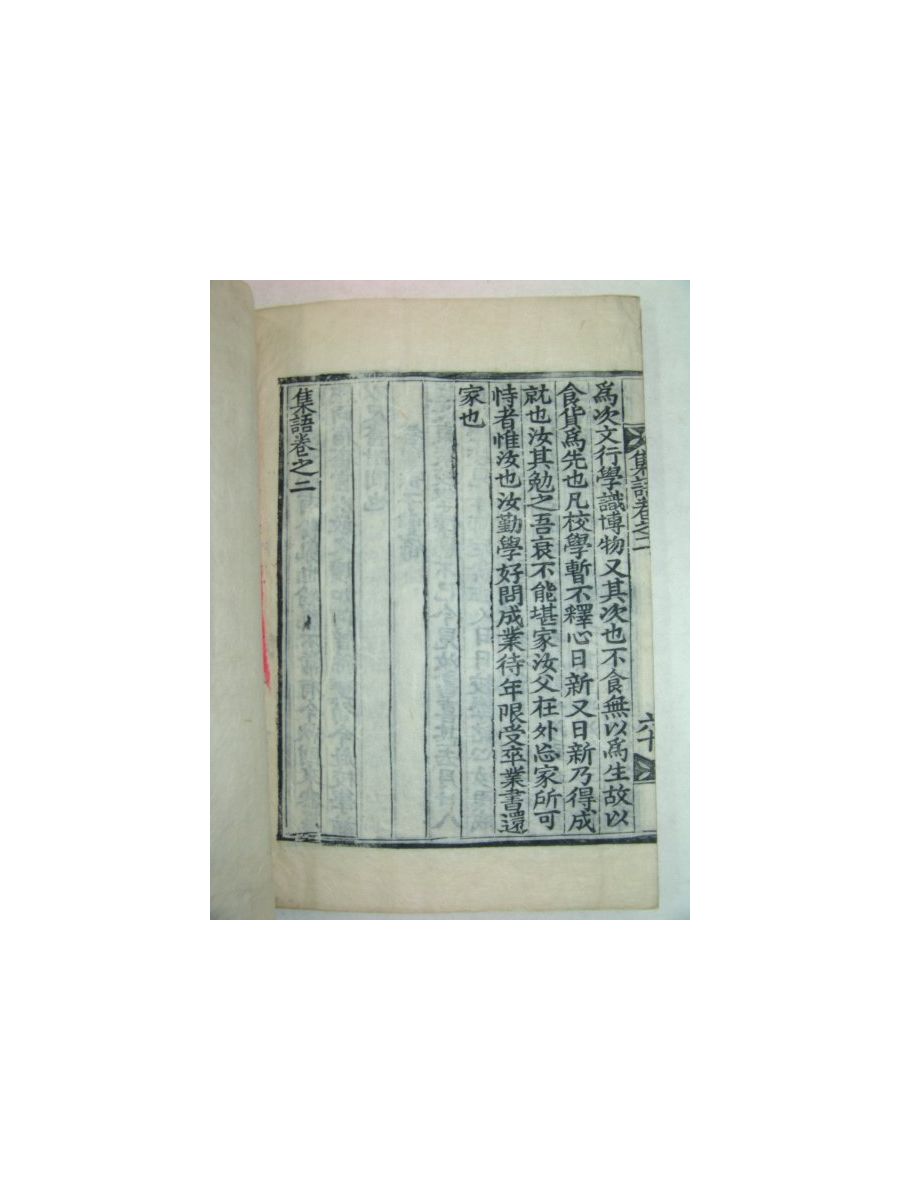 集語卷之二
六十
爲次文行學識博物又其次也不食無以爲生故以
食貨爲先也凡校學暫不釋心日新又日新乃得成
就也汝其勉之吾衰不能堪家汝父在外忘家所可
恃者惟汝也汝勤學好問成業待年限受卒業書還
家也
集語卷之二